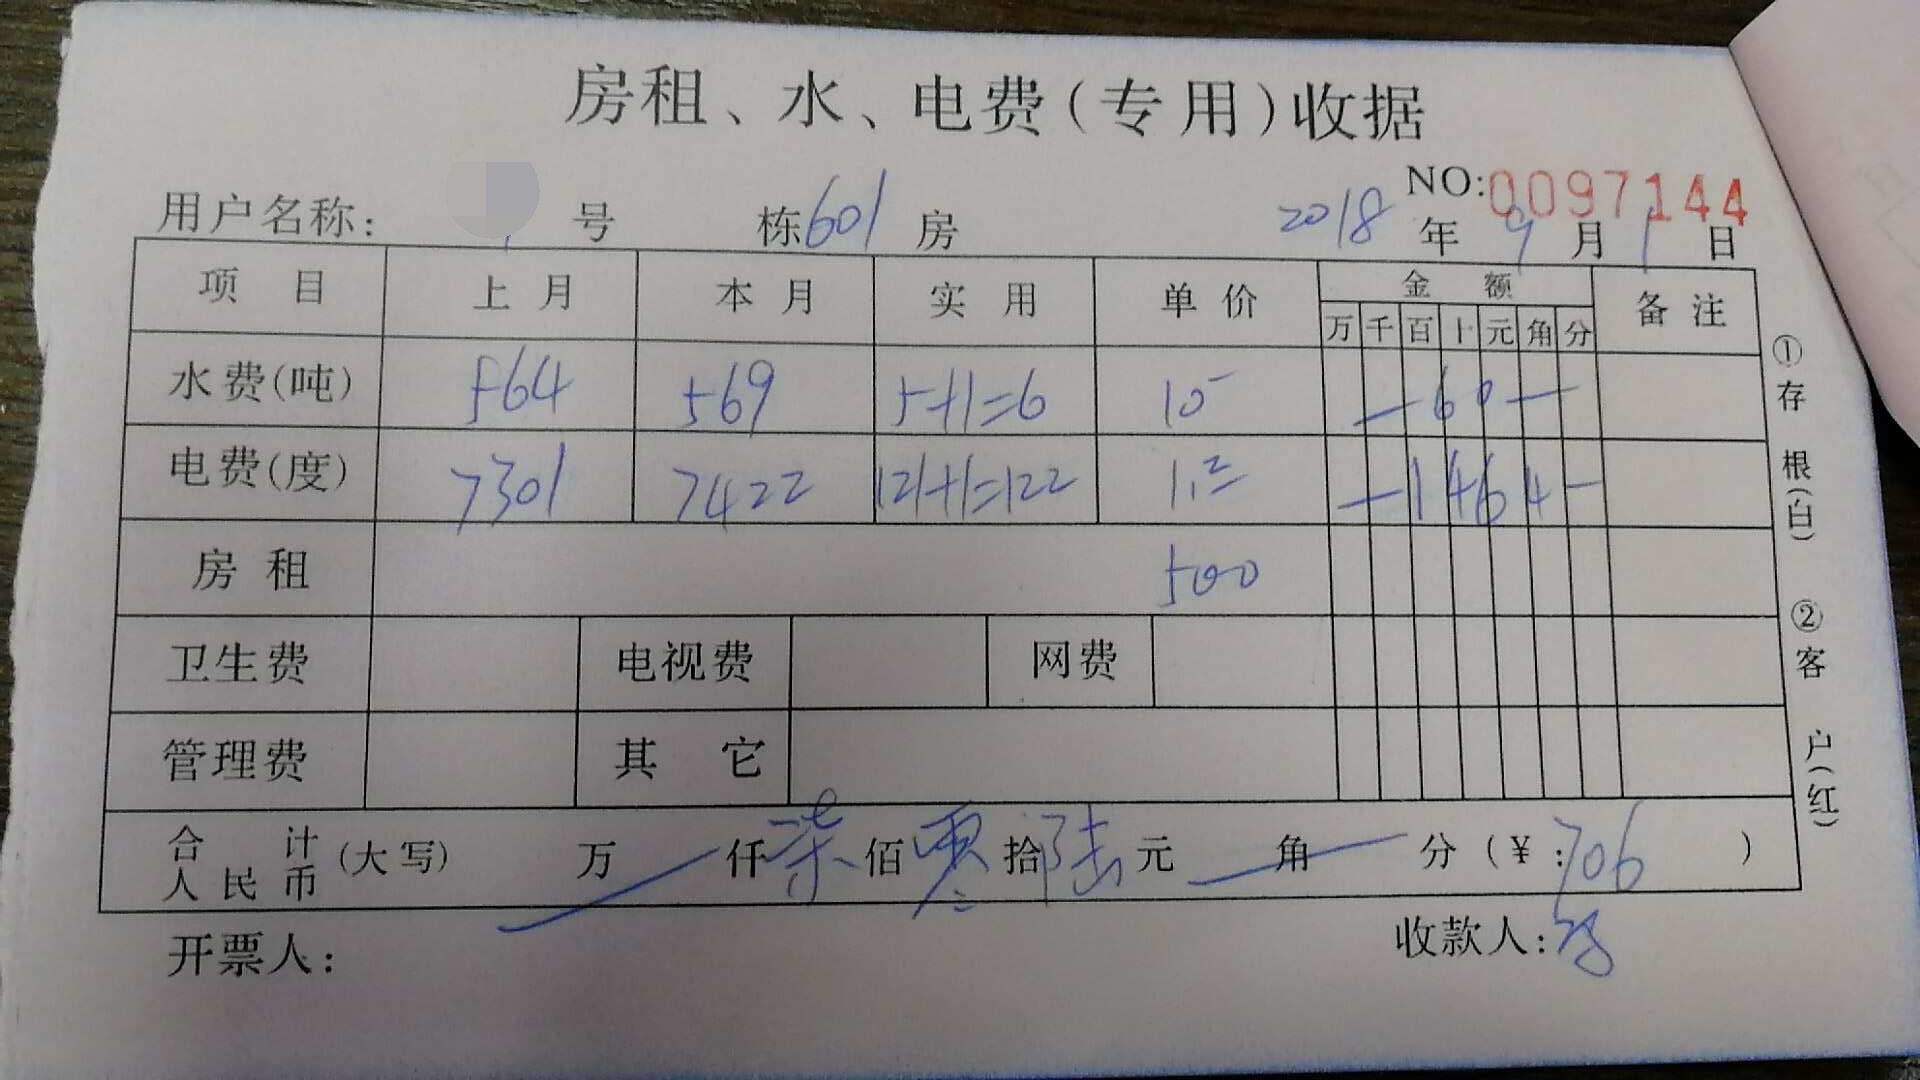 房租、水、电费(专用)收据
NO:0097144
用户名称: 号 栋601房 2018年9月1日
项目 上月 本月 实用 单价 金额 备注
万 千 百 十 元 角 分
水费(吨) 564 569 5+1=6 10 — 6 0 —
电费(度) 7301 7422 121+1=122 1.2 — 1 4 6 4 —
房租 500
卫生费 电视费 网费
管理费 其它
合计人民币(大写) 万 仟柒佰零拾陆元 角 分(¥:706)
开票人: 收款人:
①存根(白) ②客户(红)